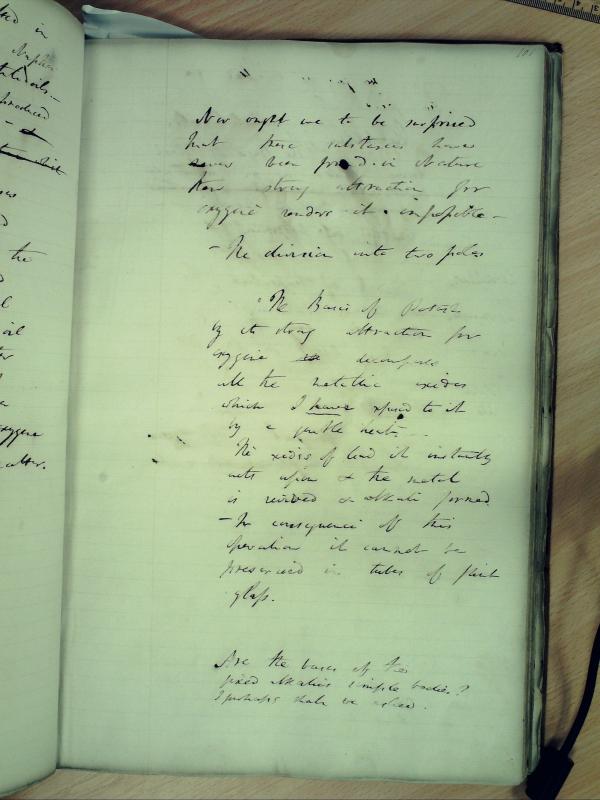 ded in
Naptha
produced
the
oil
oxygene
101
Nor ought we to be surprised
that these substances have
never been found in Nature
their strong attraction for
oxygene renders it impossible –
– The division into two poles
The Basis of Potash
by its strong attraction for
oxygene decomposes
all the metallic oxides
which I have exposed to it
by a gentle heat. –
The oxides of lead it instantly
acts upon & the metal
is revived & alkali formed
– In consequence of this
operation it cannot be
preserved in tubes of flint
glass.
Are the bases of the
fixed alkalies simple bodies?
perhaps shall be asked.